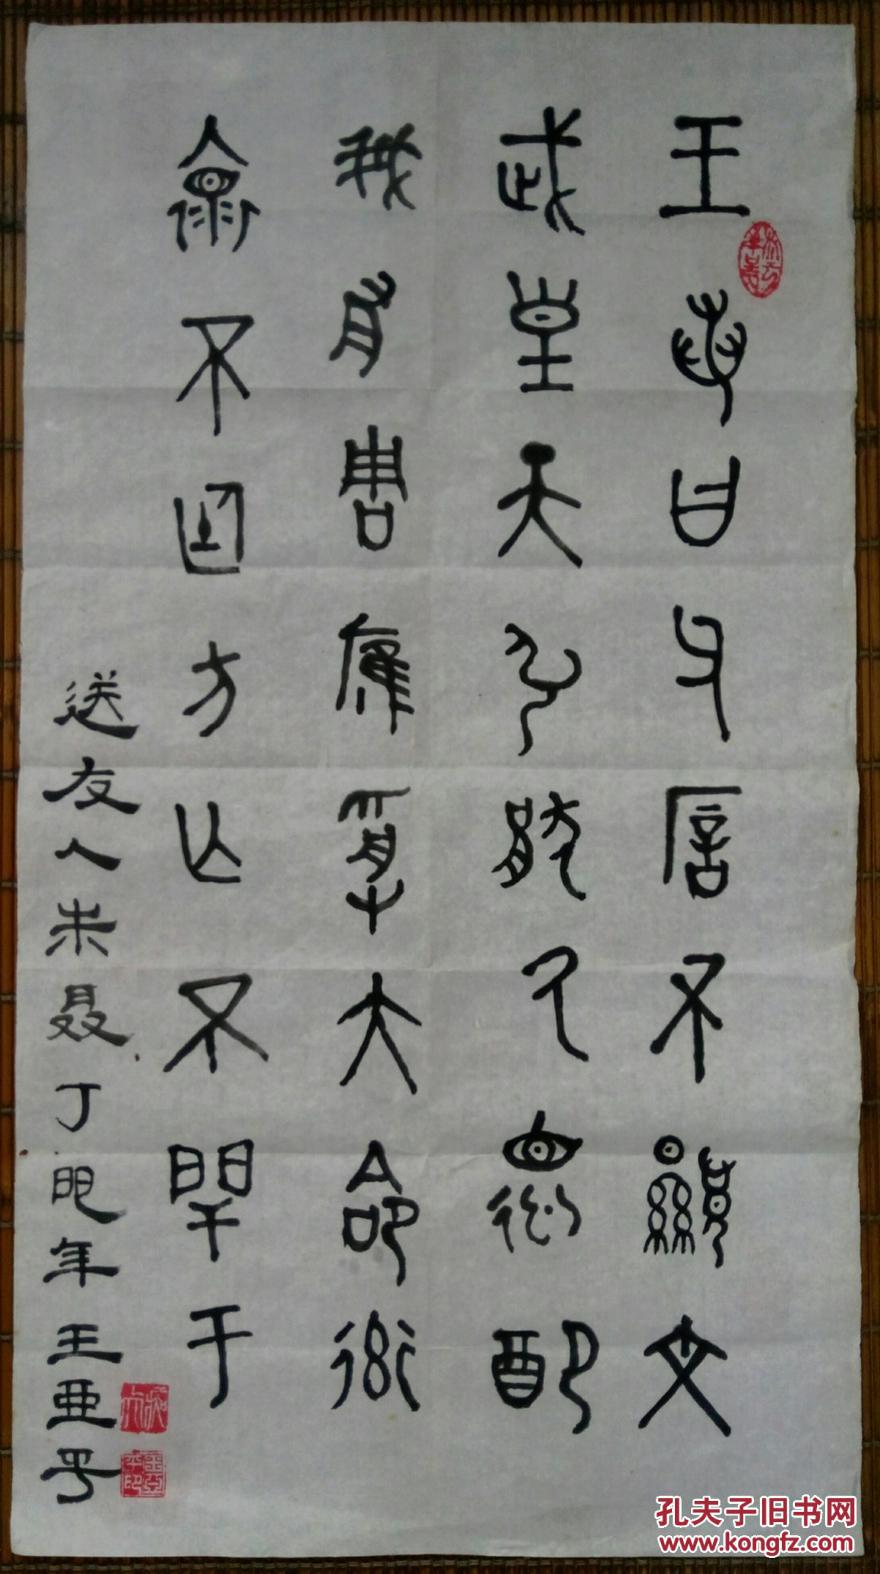 王若曰父厝不顯文
武皇天弘猒厥德配
我有周膺受大命率
褱不廷方亡不閈于
送友人朱聂丁年王亞平
孔夫子旧书网
www.kongfz.com